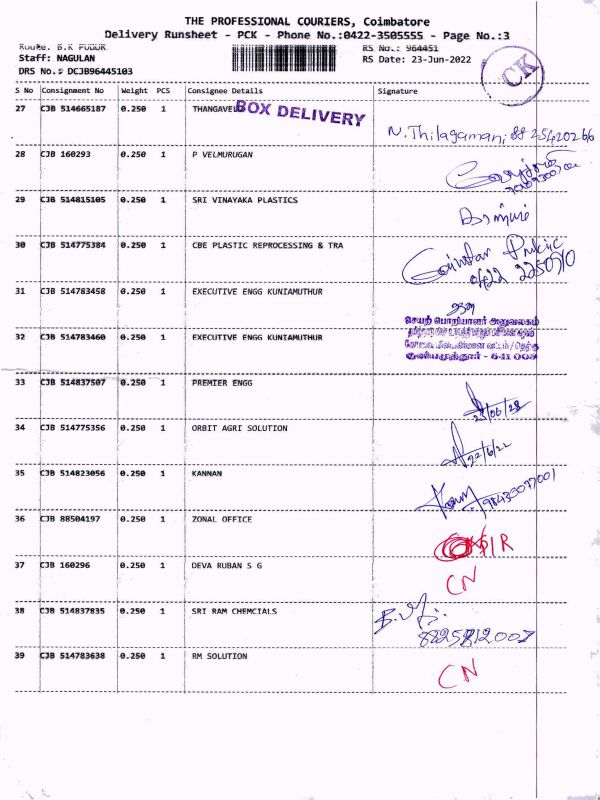 THE PROFESSIONAL COURIERS, Coimbatore
Delivery Runsheet - PCK - Phone No.:0422-3505555 - Page No.:3
Route. B.K PUDUR
RS No.: 964451
Staff: NAGULAN
RS Date: 23-Jun-2022
DRS No.: DCJB96445103
CK
S No Consignment No Weight PCS Consignee Details Signature
27 CJB 514665187 0.250 1 THANGAVEL
BOX DELIVERY
N. Thilagamani
28 CJB 160293 0.250 1 P VELMURUGAN
29 CJB 514815105 0.250 1 SRI VINAYAKA PLASTICS
30 CJB 514775384 0.250 1 CBE PLASTIC REPROCESSING & TRA
31 CJB 514783458 0.250 1 EXECUTIVE ENGG KUNIAMUTHUR
செயற் பொறியாளர் அலுவலகம்
32 CJB 514783460 0.250 1 EXECUTIVE ENGG KUNIAMUTHUR
குனியமுத்தூர் - 641 008
33 CJB 514837507 0.250 1 PREMIER ENGG
34 CJB 514775356 0.250 1 ORBIT AGRI SOLUTION
22/6/22
35 CJB 514823056 0.250 1 KANNAN
36 CJB 88504197 0.250 1 ZONAL OFFICE
37 CJB 160296 0.250 1 DEVA RUBAN S G
CN
38 CJB 514837835 0.250 1 SRI RAM CHEMCIALS
39 CJB 514783638 0.250 1 RM SOLUTION
CN